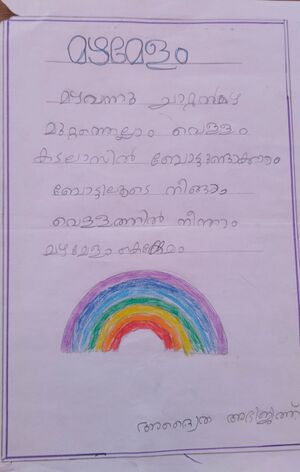 മഴമേളം
മഴവന്നു ചാറ്റൽമഴ
മുറ്റത്തെല്ലാം വെള്ളം
കടലാസിൽ ബോട്ടുണ്ടാക്കാം
ബോട്ടിലൂടെ നീങ്ങാം
വെള്ളത്തിൽ നീന്താം
മഴമേളം കേൾക്കാം
അദ്വൈത അഭിജിത്ത്